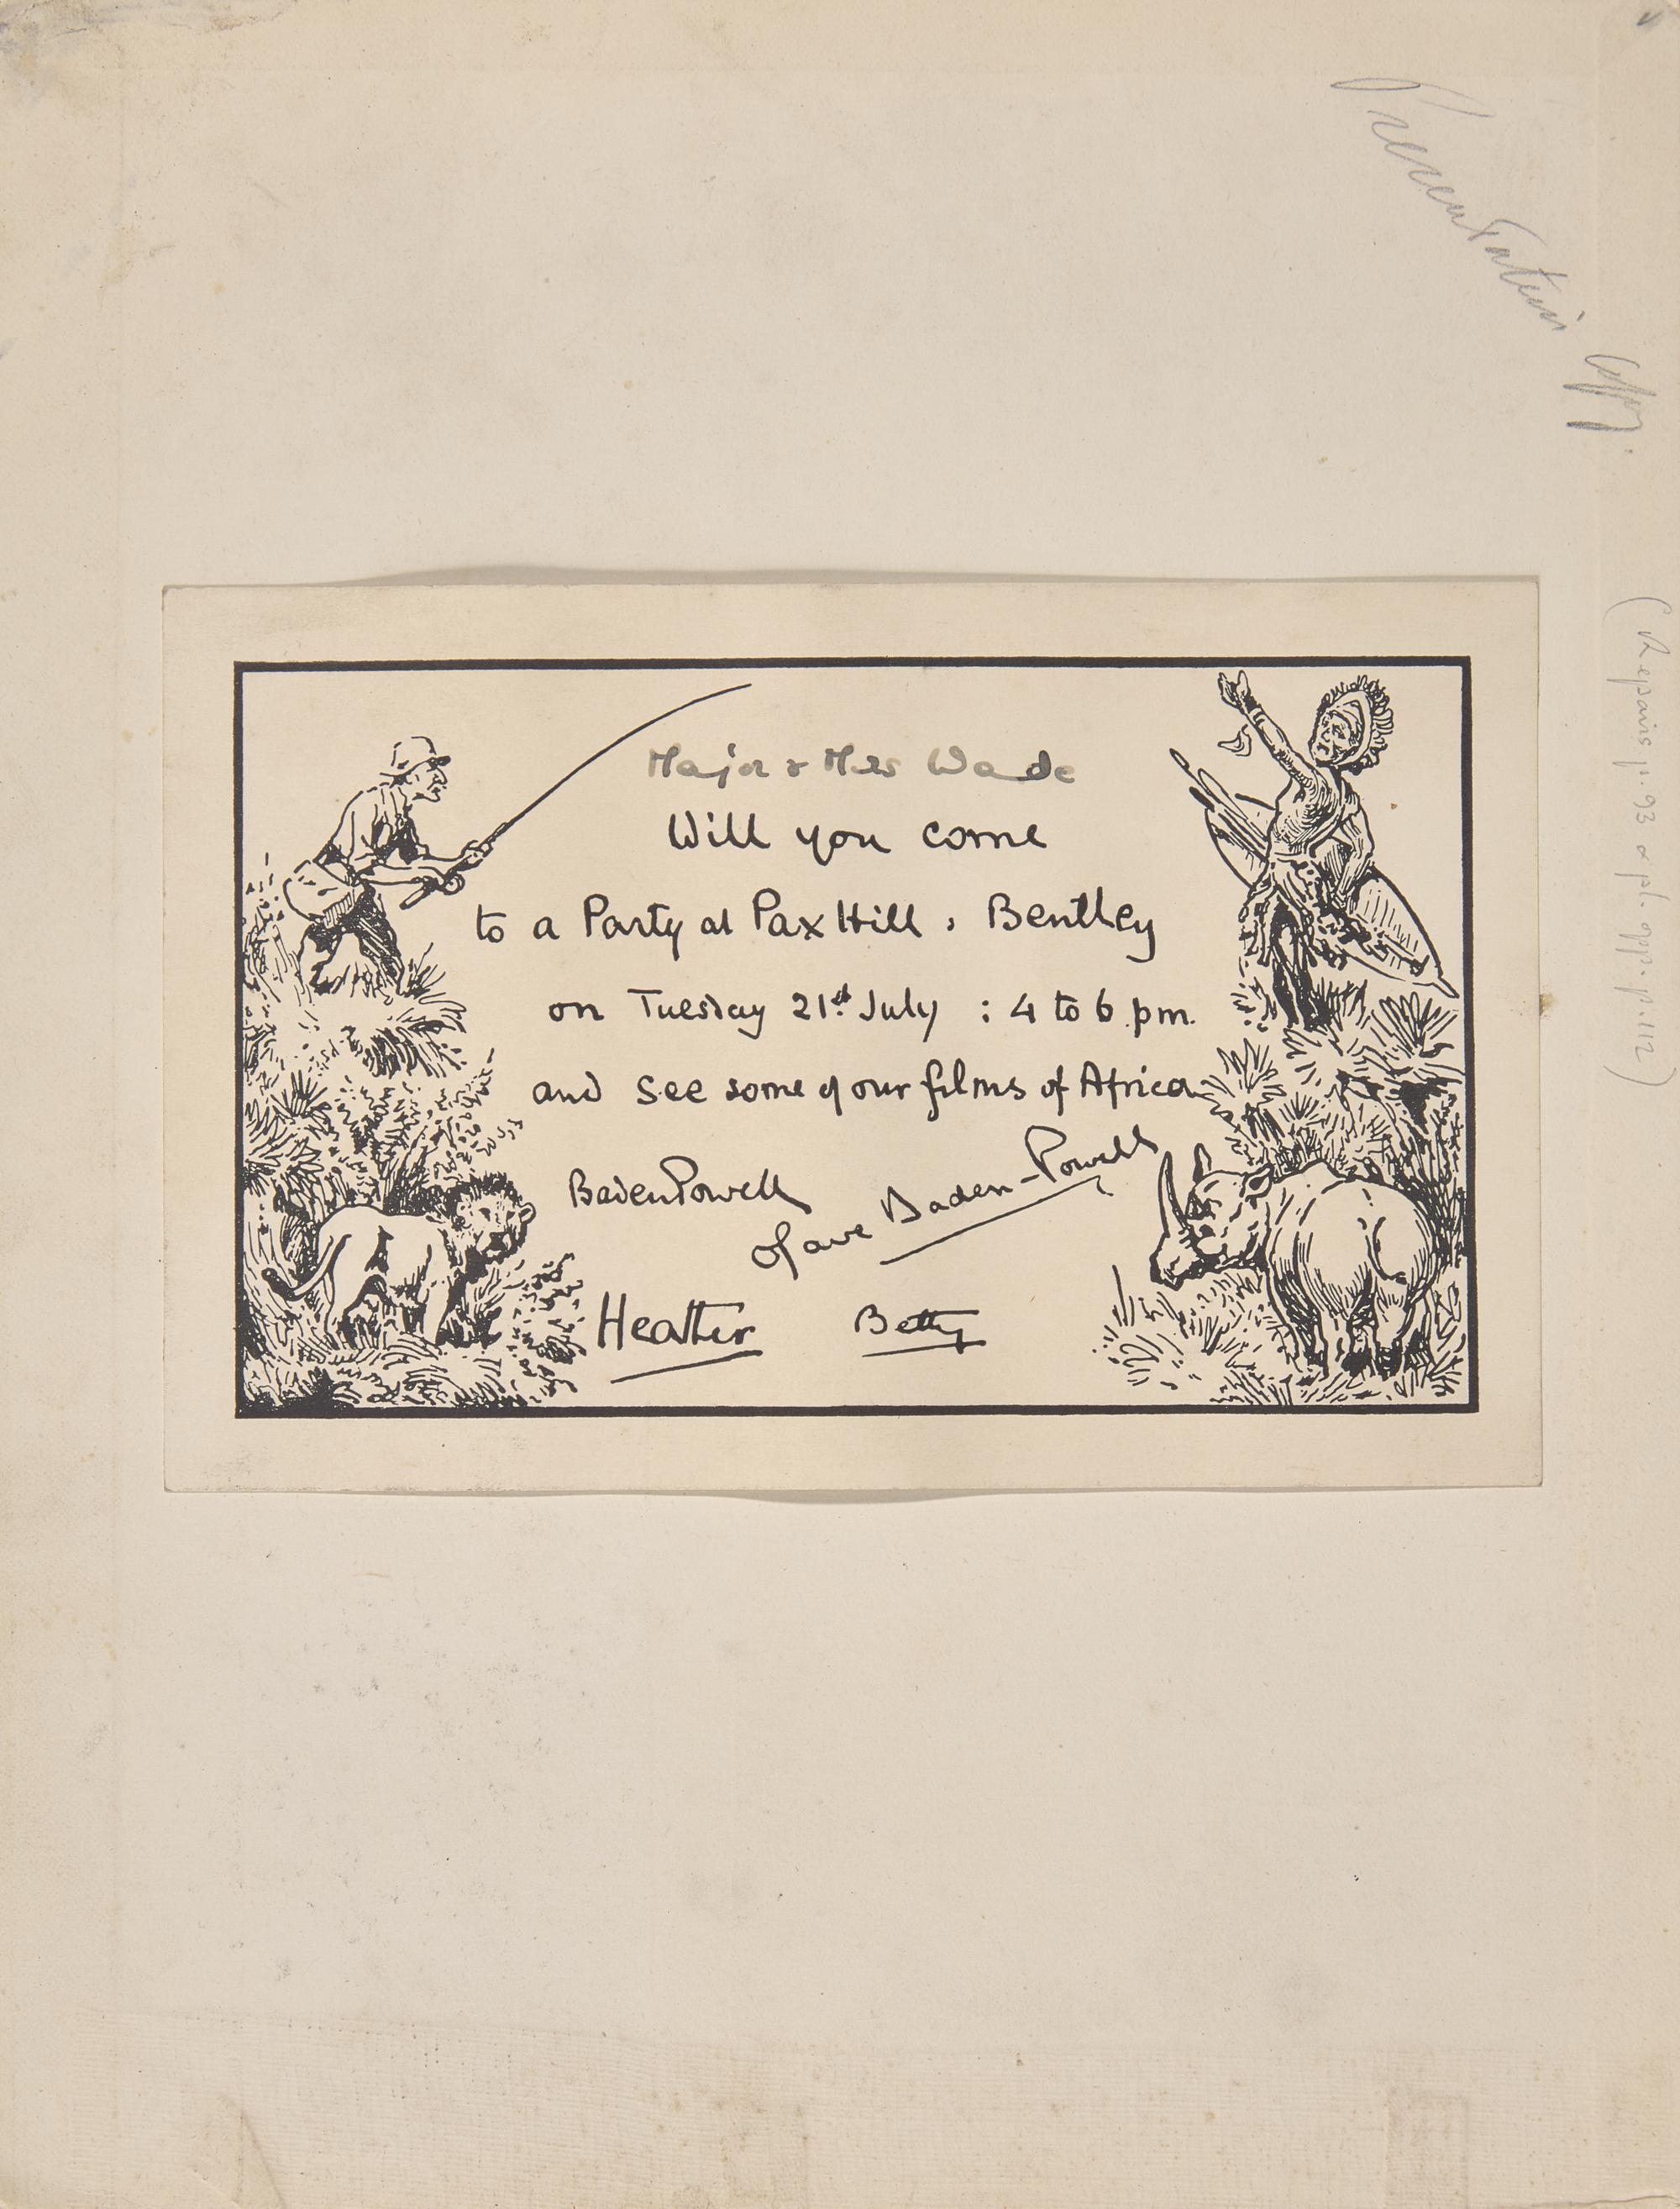 Presentation Copy.
(Repairs p. 93 & pl. opp. p. 112)
Major & Mrs Wade
Will you come
to a Party at Pax Hill, Bentley
on Tuesday 21st July : 4 to 6 pm.
and see some of our films of Africa
Baden Powell
Olave Baden-Powell
Heather Betty